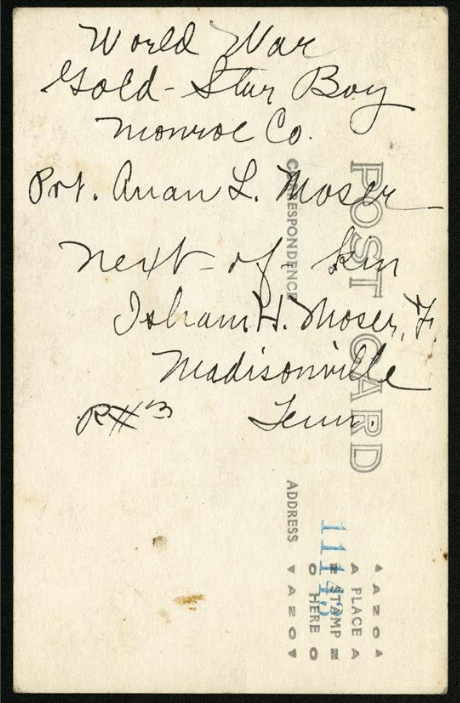 World War
Gold-Star Boy
Monroe Co.
Pvt. Avan L. Moser
Next-of-kin
Isham H. Moser, F.
Madisonville
R#3 Tenn.
POST CARD
CORRESPONDENCE
ADDRESS
PLACE
STAMP
HERE
AZO
AZO